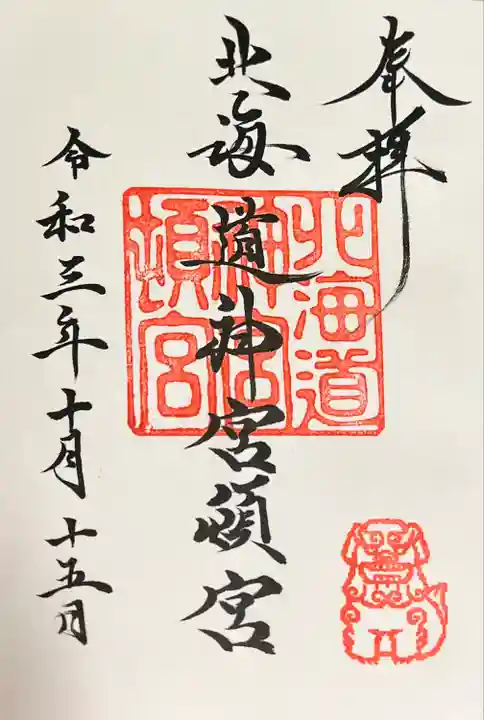 奉拝
北海道神宮頓宮
北海道
神宮
頓宮
令和三年十月十五日